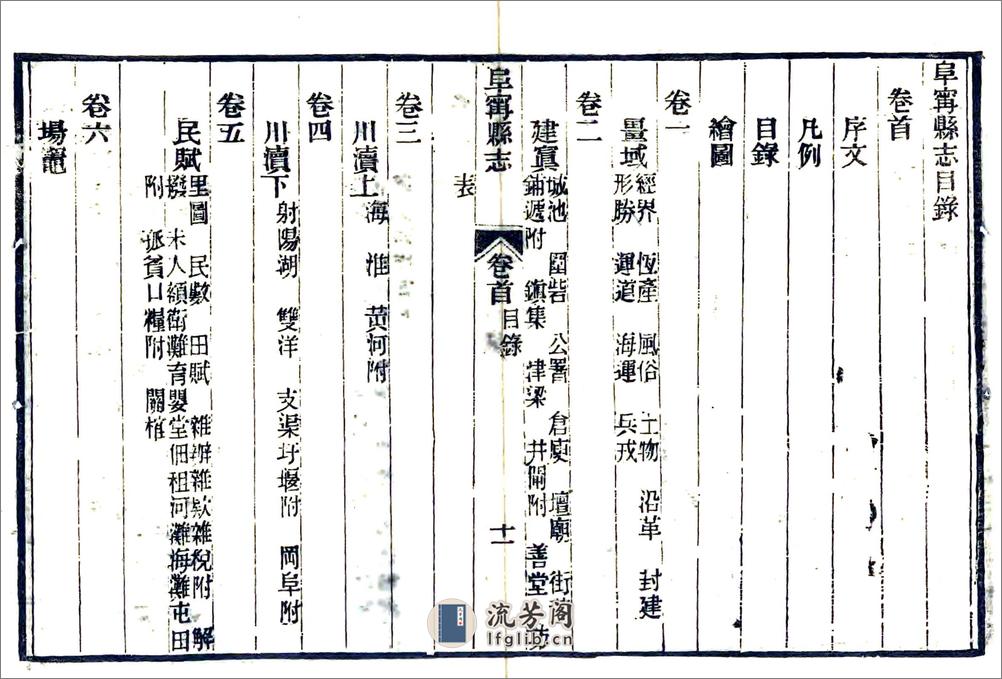 阜寗縣志目錄
卷首
序文
凡例
目錄
繪圖
卷一
疆域 經界 恆產 風俗 土物 沿革 封建
形勝 運道 海運 兵戎
卷二
建寘 城池 圖砦 公署 倉廒 壇廟 街
鋪遞附 鎭集 津梁 井閘附 善堂 坊
表
阜寗縣志
卷首
目錄
十一
卷三
川瀆上 海 淮 黄河附
卷四
川瀆下 射陽湖 雙洋 支渠圩堰附 岡阜附
卷五
民賦 里圖 民數 田賦 雜辦雜款雜稅附 解
撥 未入額衛灘育嬰堂佃租河灘海灘屯田
附 孤貧口糧附 關榷
卷六
場竈
流芳阁
lfglib.cn